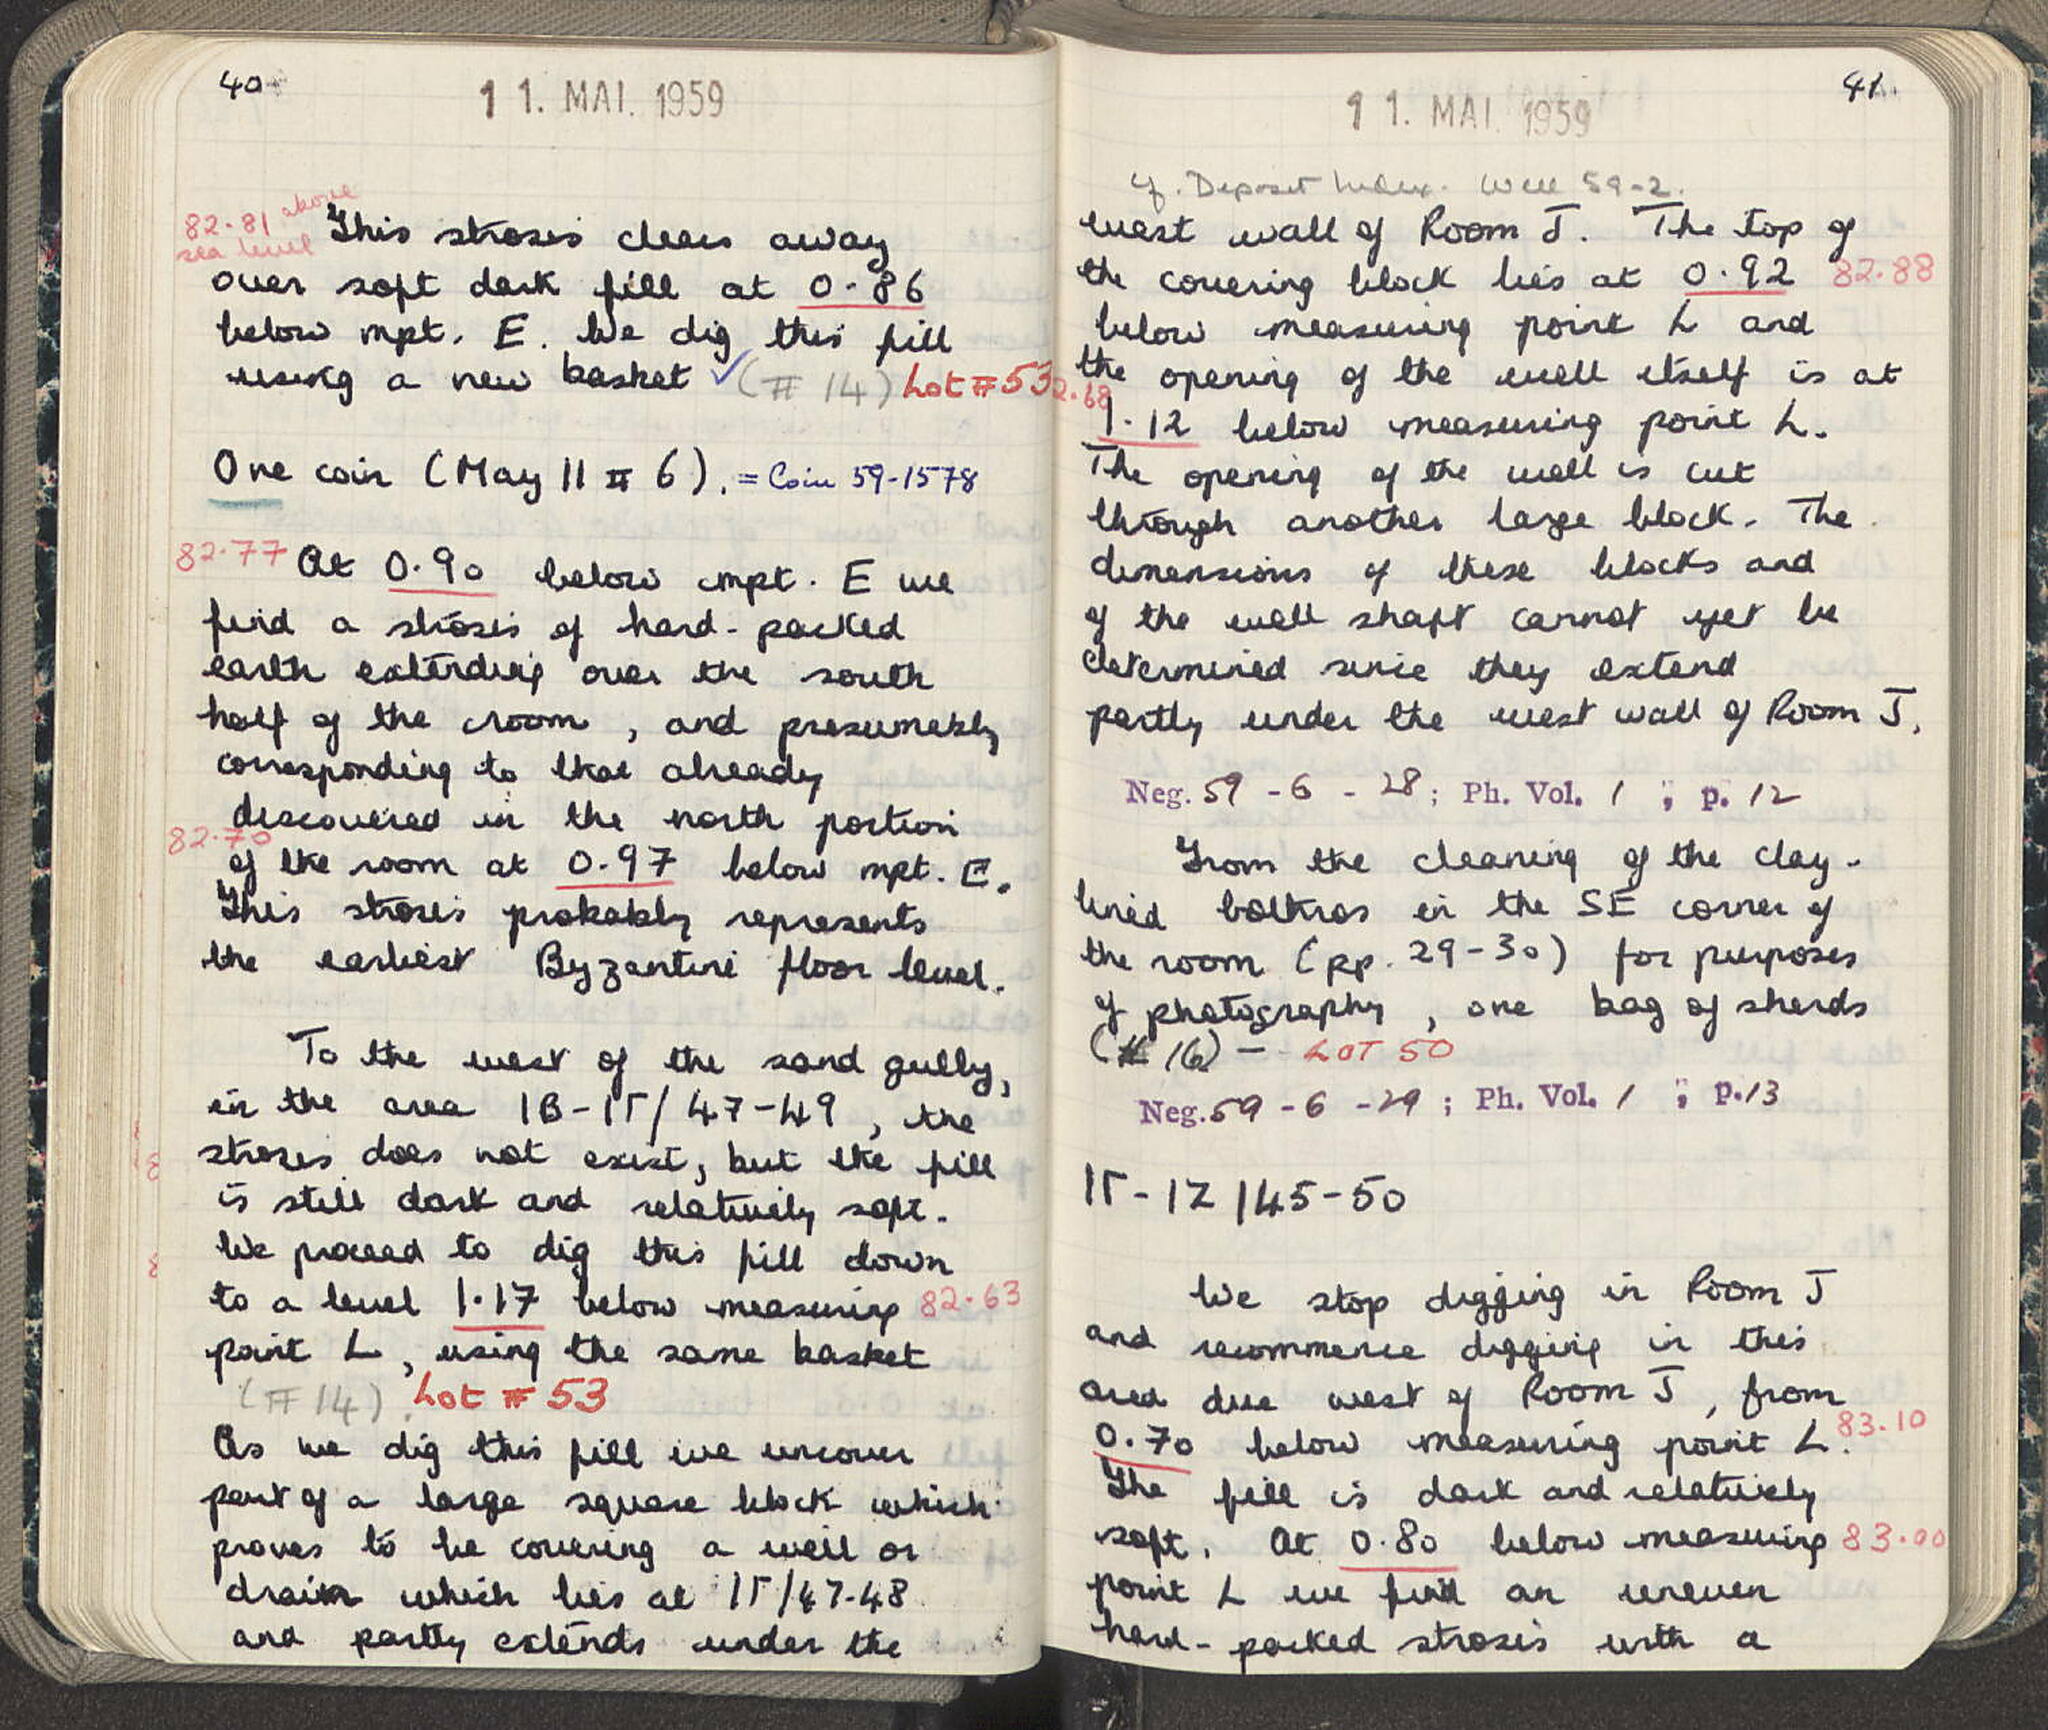 40
11. MAI. 1959
82.81 above
sea level
This stroses clears away
over soft dark fill at 0.86
below mpt. E. We dig this fill
using a new basket ✓ (# 14) Lot # 53
One coin (May 11 # 6). = Coin 59-1578
82.77 At 0.90 below mpt. E we
find a strosis of hard-packed
earth extending over the south
half of the room, and presumably
corresponding to that already
discovered in the north portion
82.70
of the room at 0.97 below mpt. E.
This strosis probably represents
the earliest Byzantine floor level.
To the west of the sand gully,
in the area 1B-1Γ/47-49, the
strosis does not exist, but the fill
is still dark and relatively soft.
We proceed to dig this fill down
to a level 1.17 below measuring 82.63
point L, using the same basket
(# 14). Lot # 53
As we dig this fill we uncover
part of a large square block which
proves to be covering a well or
drain which lies at 1Γ/47-48
and partly extends under the
41
11. MAI. 1959
cf. Deposit Index. Well 59-2.
west wall of Room J. The top of
the covering block lies at 0.92 82.88
below measuring point L and
the opening of the well itself is at
82.68
1.12 below measuring point L.
The opening of the well is cut
through another large block. The
dimensions of these blocks and
of the well shaft cannot yet be
determined since they extend
partly under the west wall of Room J.
Neg. 59 - 6 - 28; Ph. Vol. 1 ; p. 12
From the cleaning of the clay-
lined bothros in the SE corner of
the room (pp. 29-30) for purposes
of photography, one bag of sherds
(# 16) - LOT 50
Neg. 59 - 6 - 29; Ph. Vol. 1 ; p. 13
1Γ-1Z/45-50
We stop digging in Room J
and recommence digging in this
area due west of Room J, from
0.70 below measuring point L. 83.10
The fill is dark and relatively
soft. At 0.80 below measuring 83.00
point L we find an uneven
hard-packed strosis with a